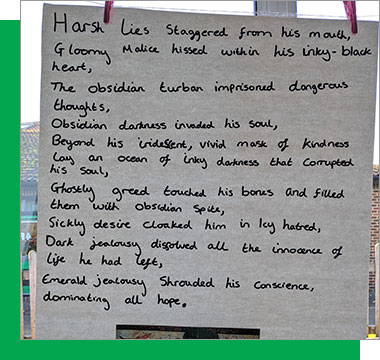 Harsh lies staggered from his mouth,
Gloomy Malice hissed within his inky-black
heart,
The obsidian turban imprisoned dangerous
thoughts,
Obsidian darkness invaded his soul,
Beyond his iridescent, vivid mask of kindness
lay an ocean of inky darkness that corrupted
his soul,
Ghostly greed touched his bones and filled
them with obsidian spite,
Sickly desire cloaked him in Icy hatred,
Dark jealousy dissolved all the innocence of
life he had left,
Emerald jealousy Shrouded his conscience,
dominating all hope.